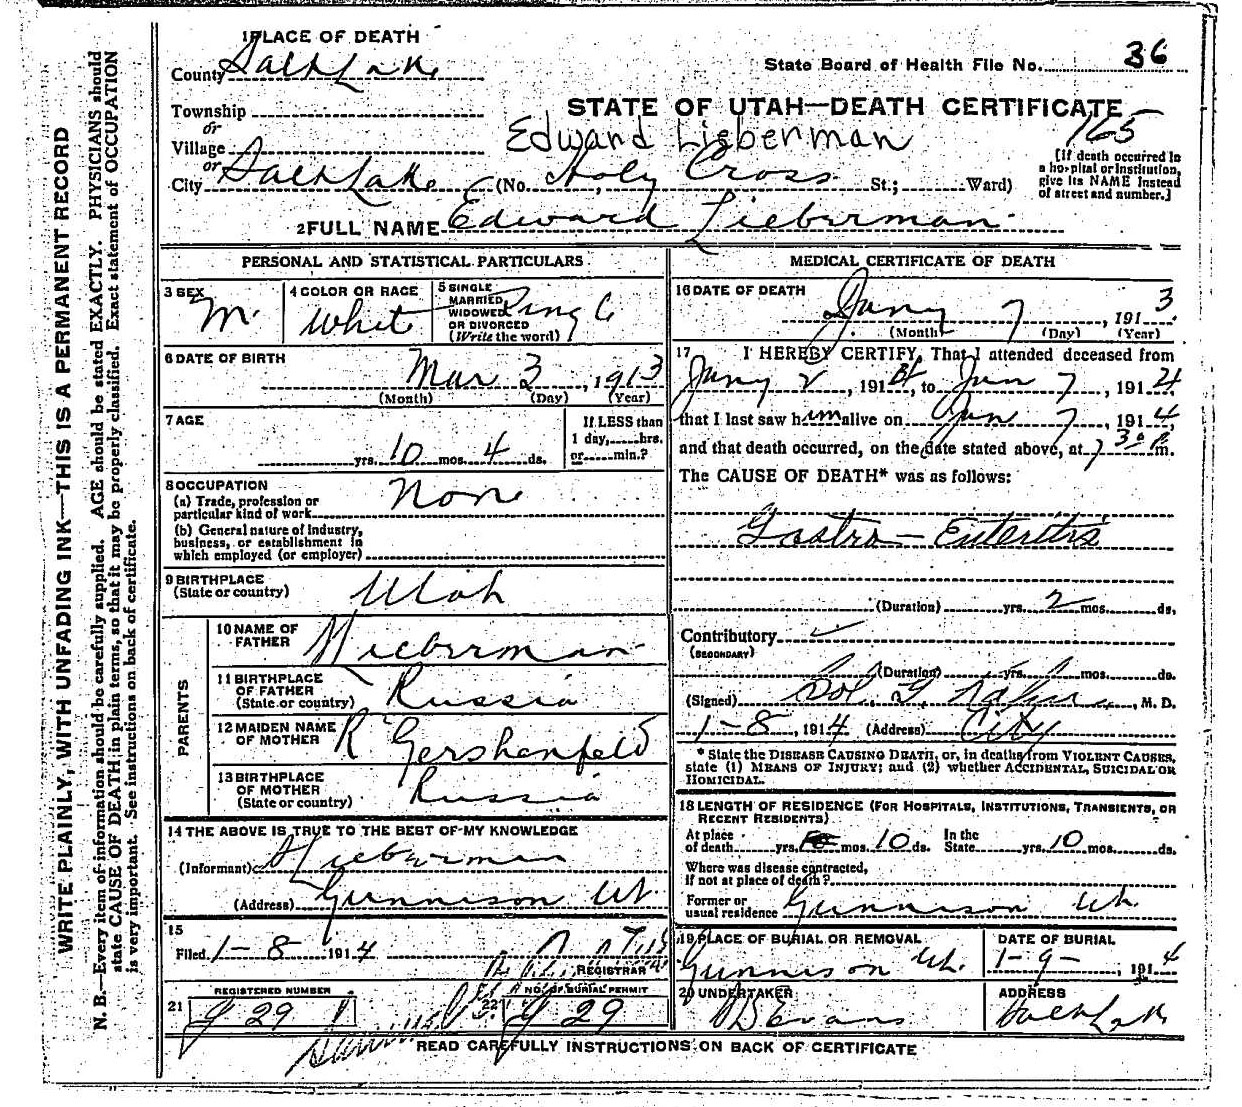 1 PLACE OF DEATH
County Salt Lake
State Board of Health File No. 36
Township
or
Village
or
City Salt Lake (No. Holy Cross St.; Ward)
STATE OF UTAH—DEATH CERTIFICATE
Edward Lieberman
165
[If death occurred in a hospital or institution, give its NAME instead of street and number.]
2 FULL NAME Edward Lieberman
WRITE PLAINLY, WITH UNFADING INK—THIS IS A PERMANENT RECORD
N. B.—Every item of information should be carefully supplied. AGE should be stated EXACTLY. PHYSICIANS should
state CAUSE OF DEATH in plain terms, so that it may be properly classified. Exact statement of OCCUPATION
is very important. See instructions on back of certificate.
PERSONAL AND STATISTICAL PARTICULARS
3 SEX M.
4 COLOR OR RACE White
5 SINGLE
MARRIED
WIDOWED
OR DIVORCED
(Write the word)
6 DATE OF BIRTH
Mar 3, 1913
(Month) (Day) (Year)
7 AGE
yrs. 10 mos. 4 ds.
If LESS than
1 day, hrs.
or min.?
8 OCCUPATION
(a) Trade, profession or
particular kind of work None
(b) General nature of industry,
business, or establishment in
which employed (or employer)
9 BIRTHPLACE
(State or country) Utah
PARENTS
10 NAME OF
FATHER Lieberman
11 BIRTHPLACE
OF FATHER
(State or country) Russia
12 MAIDEN NAME
OF MOTHER R Gershenfeld
13 BIRTHPLACE
OF MOTHER
(State or country) Russia
14 THE ABOVE IS TRUE TO THE BEST OF MY KNOWLEDGE
(Informant) Lieberman
(Address) Gunnison Ut
15
Filed 1-8 1914
REGISTRAR
21 REGISTERED NUMBER
J 29
22 NO. OF BURIAL PERMIT
J 29
MEDICAL CERTIFICATE OF DEATH
16 DATE OF DEATH
Jany 7, 1913
(Month) (Day) (Year)
17 I HEREBY CERTIFY, That I attended deceased from
Jany 2, 191, to Jan 7, 1914
that I last saw him alive on Jan 7, 1914,
and that death occurred, on the date stated above, at 7 30 P. m.
The CAUSE OF DEATH* was as follows:
Gastro-Enteritis
(Duration) yrs. 2 mos. ds.
Contributory
(SECONDARY)
(Duration) yrs. mos. ds.
(Signed) Sol. G. , M. D.
1-8, 1914 (Address) City
* State the DISEASE CAUSING DEATH, or, in deaths from VIOLENT CAUSES,
state (1) MEANS OF INJURY; and (2) whether ACCIDENTAL, SUICIDAL OR
HOMICIDAL.
18 LENGTH OF RESIDENCE (FOR HOSPITALS, INSTITUTIONS, TRANSIENTS, OR
RECENT RESIDENTS)
At place
of death yrs. mos. 10 ds. In the
State yrs. 10 mos. ds.
Where was disease contracted,
if not at place of death?
Former or
usual residence Gunnison Ut.
19 PLACE OF BURIAL OR REMOVAL
Gunnison Ut.
DATE OF BURIAL
1-9-, 1914
20 UNDERTAKER
Evans
ADDRESS
Salt Lake
READ CAREFULLY INSTRUCTIONS ON BACK OF CERTIFICATE